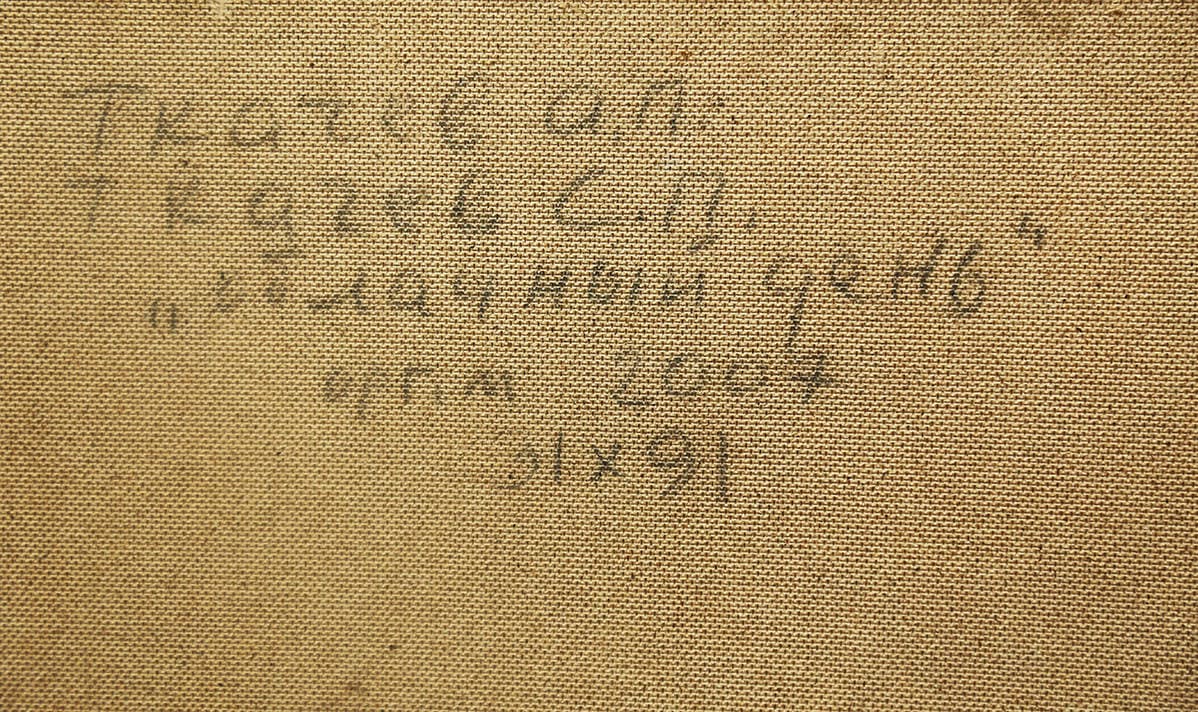 Ткачев А.П.
Ткачев С.П.
„Облачный день“
оргт 2007
31х91